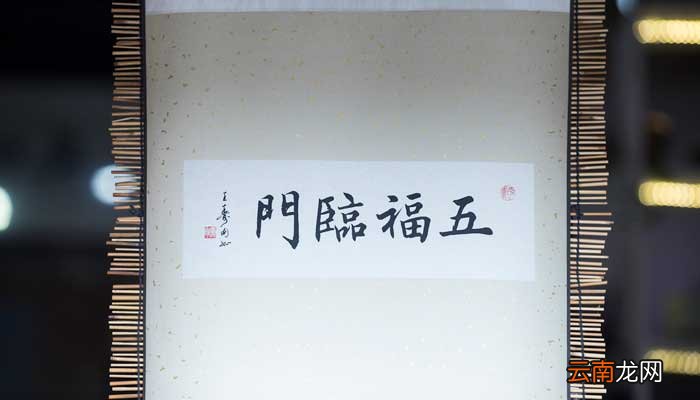 五福臨門
云南龙网